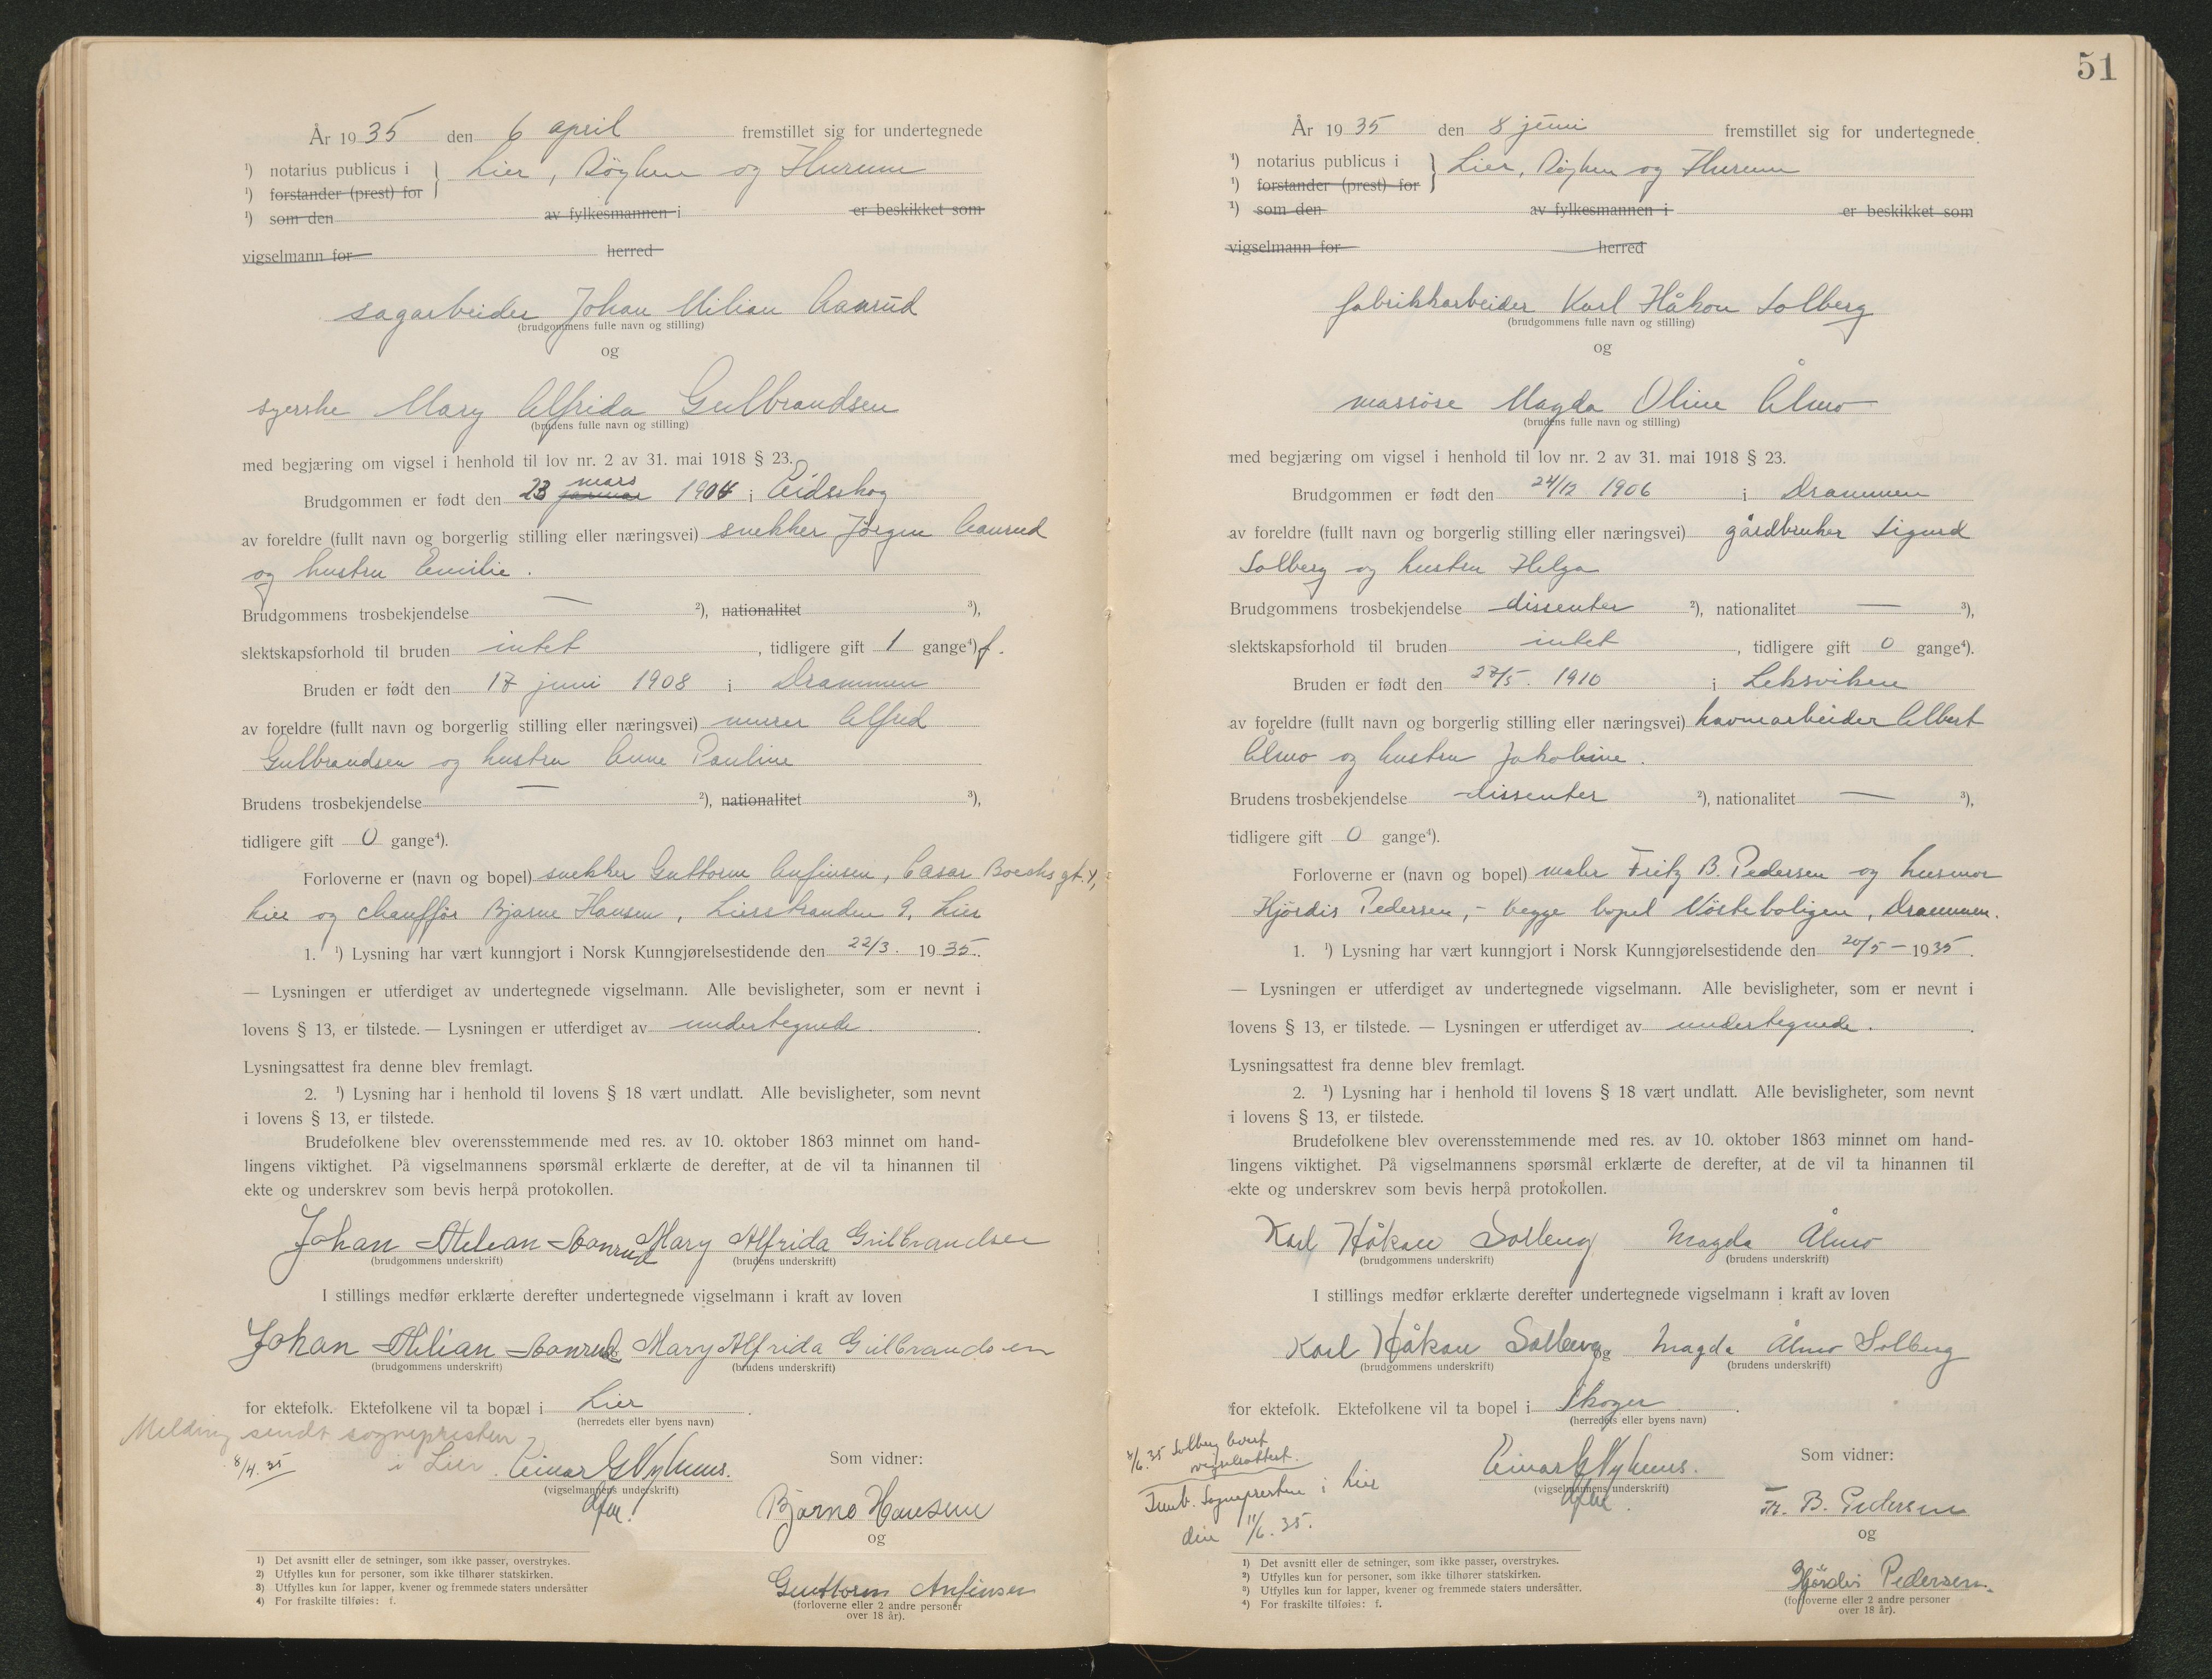 År 1935 den 6 april fremstillet sig for undertegnede
¹) notarius publicus i } Lier, Røyken og Hurum
¹) forstander (prest) for
¹) som den av fylkesmannen i er beskikket som
vigselmann for herred
sagarbeider Johan Milian Aanrud
(brudgommens fulle navn og stilling)
og
syerske Mary Alfrida Gulbrandsen
(brudens fulle navn og stilling)
med begjæring om vigsel i henhold til lov nr. 2 av 31. mai 1918 § 23.
mars
Brudgommen er født den 23 januar 1904 i Eidskog
av foreldre (fullt navn og borgerlig stilling eller næringsvei) snekker Jørgen Aanrud
og hustru Emilie.
Brudgommens trosbekjendelse — ²), nationalitet ³),
slektskapsforhold til bruden intet, tidligere gift 1 gange⁴) f.
Bruden er født den 17 juni 1908 i Drammen
av foreldre (fullt navn og borgerlig stilling eller næringsvei) murer Alfred
Gulbrandsen og hustru Anne Pauline
Brudens trosbekjendelse — ²), nationalitet ³),
tidligere gift 0 gange⁴).
Forloverne er (navn og bopel) snekker Guttorm Anfinsen, Cæsar Boecks gt. 4,
Lier og chauffør Bjarne Hansen, Lierstranden 9, Lier
1. ¹) Lysning har vært kunngjort i Norsk Kunngjørelsestidende den 22/3. 1935.
— Lysningen er utferdiget av undertegnede vigselmann. Alle bevisligheter, som er nevnt i
lovens § 13, er tilstede. — Lysningen er utferdiget av undertegnede.
Lysningsattest fra denne blev fremlagt.
2. ¹) Lysning har i henhold til lovens § 18 vært undlatt. Alle bevisligheter, som nevnt
i lovens § 13, er tilstede.
Brudefolkene blev overensstemmende med res. av 10. oktober 1863 minnet om hand-
lingens viktighet. På vigselmannens spørsmål erklærte de derefter, at de vil ta hinannen til
ekte og underskrev som bevis herpå protokollen.
Johan Milian Aanrud Mary Alfrida Gulbrandsen
(brudgommens underskrift) (brudens underskrift)
I stillings medfør erklærte derefter undertegnede vigselmann i kraft av loven
Johan Milian Aanrud Mary Alfrida Gulbrandsen
(brudgommens underskrift) (brudens underskrift)
for ektefolk. Ektefolkene vil ta bopæl i Lier.
(herredets eller byens navn)
Melding sendt sognepresten
i Lier. 8/4.35
Einar G Nyhuus. Som vidner:
(vigselmannens underskrift)
Bjarne Hansen
og
Guttorm Anfinsen
(forloverne eller 2 andre personer
over 18 år).
1) Det avsnitt eller de setninger, som ikke passer, overstrykes.
2) Utfylles kun for personer, som ikke tilhører statskirken.
3) Utfylles kun for lapper, kvener og fremmede staters undersåtter
4) For fraskilte tilføies: f.
51
År 1935 den 8 juni fremstillet sig for undertegnede
¹) notarius publicus i } Lier, Røyken og Hurum
¹) forstander (prest) for
¹) som den av fylkesmannen i er beskikket som
vigselmann for herred
fabrikkarbeider Karl Håkon Solberg
(brudgommens fulle navn og stilling)
og
massøse Magda Oline Ålmo
(brudens fulle navn og stilling)
med begjæring om vigsel i henhold til lov nr. 2 av 31. mai 1918 § 23.
Brudgommen er født den 24/12 1906 i Drammen
av foreldre (fullt navn og borgerlig stilling eller næringsvei) gårdbruker Sigurd
Solberg og hustru Helga
Brudgommens trosbekjendelse dissenter ²), nationalitet — ³),
slektskapsforhold til bruden intet, tidligere gift 0 gange⁴).
Bruden er født den 27/5. 1910 i Leksviken
av foreldre (fullt navn og borgerlig stilling eller næringsvei) havnearbeider Albert
Ålmo og hustru Jakobine.
Brudens trosbekjendelse dissenter ²), nationalitet — ³),
tidligere gift 0 gange⁴).
Forloverne er (navn og bopel) maler Fritz B. Pedersen og husmor
Hjørdis Pedersen, - begge bopel Vösteboligen, Drammen.
1. ¹) Lysning har vært kunngjort i Norsk Kunngjørelsestidende den 20/5 - 1935.
— Lysningen er utferdiget av undertegnede vigselmann. Alle bevisligheter, som er nevnt i
lovens § 13, er tilstede. — Lysningen er utferdiget av undertegnede.
Lysningsattest fra denne blev fremlagt.
2. ¹) Lysning har i henhold til lovens § 18 vært undlatt. Alle bevisligheter, som nevnt
i lovens § 13, er tilstede.
Brudefolkene blev overensstemmende med res. av 10. oktober 1863 minnet om hand-
lingens viktighet. På vigselmannens spørsmål erklærte de derefter, at de vil ta hinannen til
ekte og underskrev som bevis herpå protokollen.
Karl Håkon Solberg Magda Ålmo
(brudgommens underskrift) (brudens underskrift)
I stillings medfør erklærte derefter undertegnede vigselmann i kraft av loven
Karl Håkon Solberg og Magda Ålmo Solberg
(brudgommens underskrift) (brudens underskrift)
for ektefolk. Ektefolkene vil ta bopel i Skoger.
(herredets eller byens navn)
8/6.35 Solberg
vigselsattest.
Sognepresten i Lier
den 11/6.35.
Einar G Nyhuus. Som vidner:
(vigselmannens underskrift)
Fr. B. Pedersen
og
Hjørdis Pedersen.
(forloverne eller 2 andre personer
over 18 år).
1) Det avsnitt eller de setninger, som ikke passer, overstrykes.
2) Utfylles kun for personer, som ikke tilhører statskirken.
3) Utfylles kun for lapper, kvener og fremmede staters undersåtter.
4) For fraskilte tilføies: f.